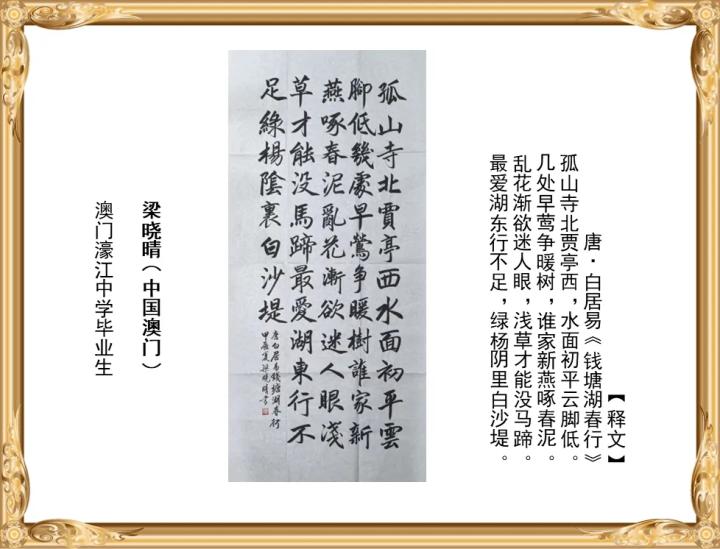 【释文】
唐·白居易《钱塘湖春行》
孤山寺北贾亭西，水面初平云脚低。
几处早莺争暖树，谁家新燕啄春泥。
乱花渐欲迷人眼，浅草才能没马蹄。
最爱湖东行不足，绿杨阴里白沙堤。
孤山寺北賈亭西水面初平雲
腳低幾處早鶯争暖樹誰家新
燕啄春泥亂花漸欲迷人眼淺
草才能没馬蹄最愛湖東行不
足綠楊陰裏白沙堤
唐白居易錢塘湖春行
甲辰夏梁曉晴書
梁晓晴（中国澳门）
澳门濠江中学毕业生